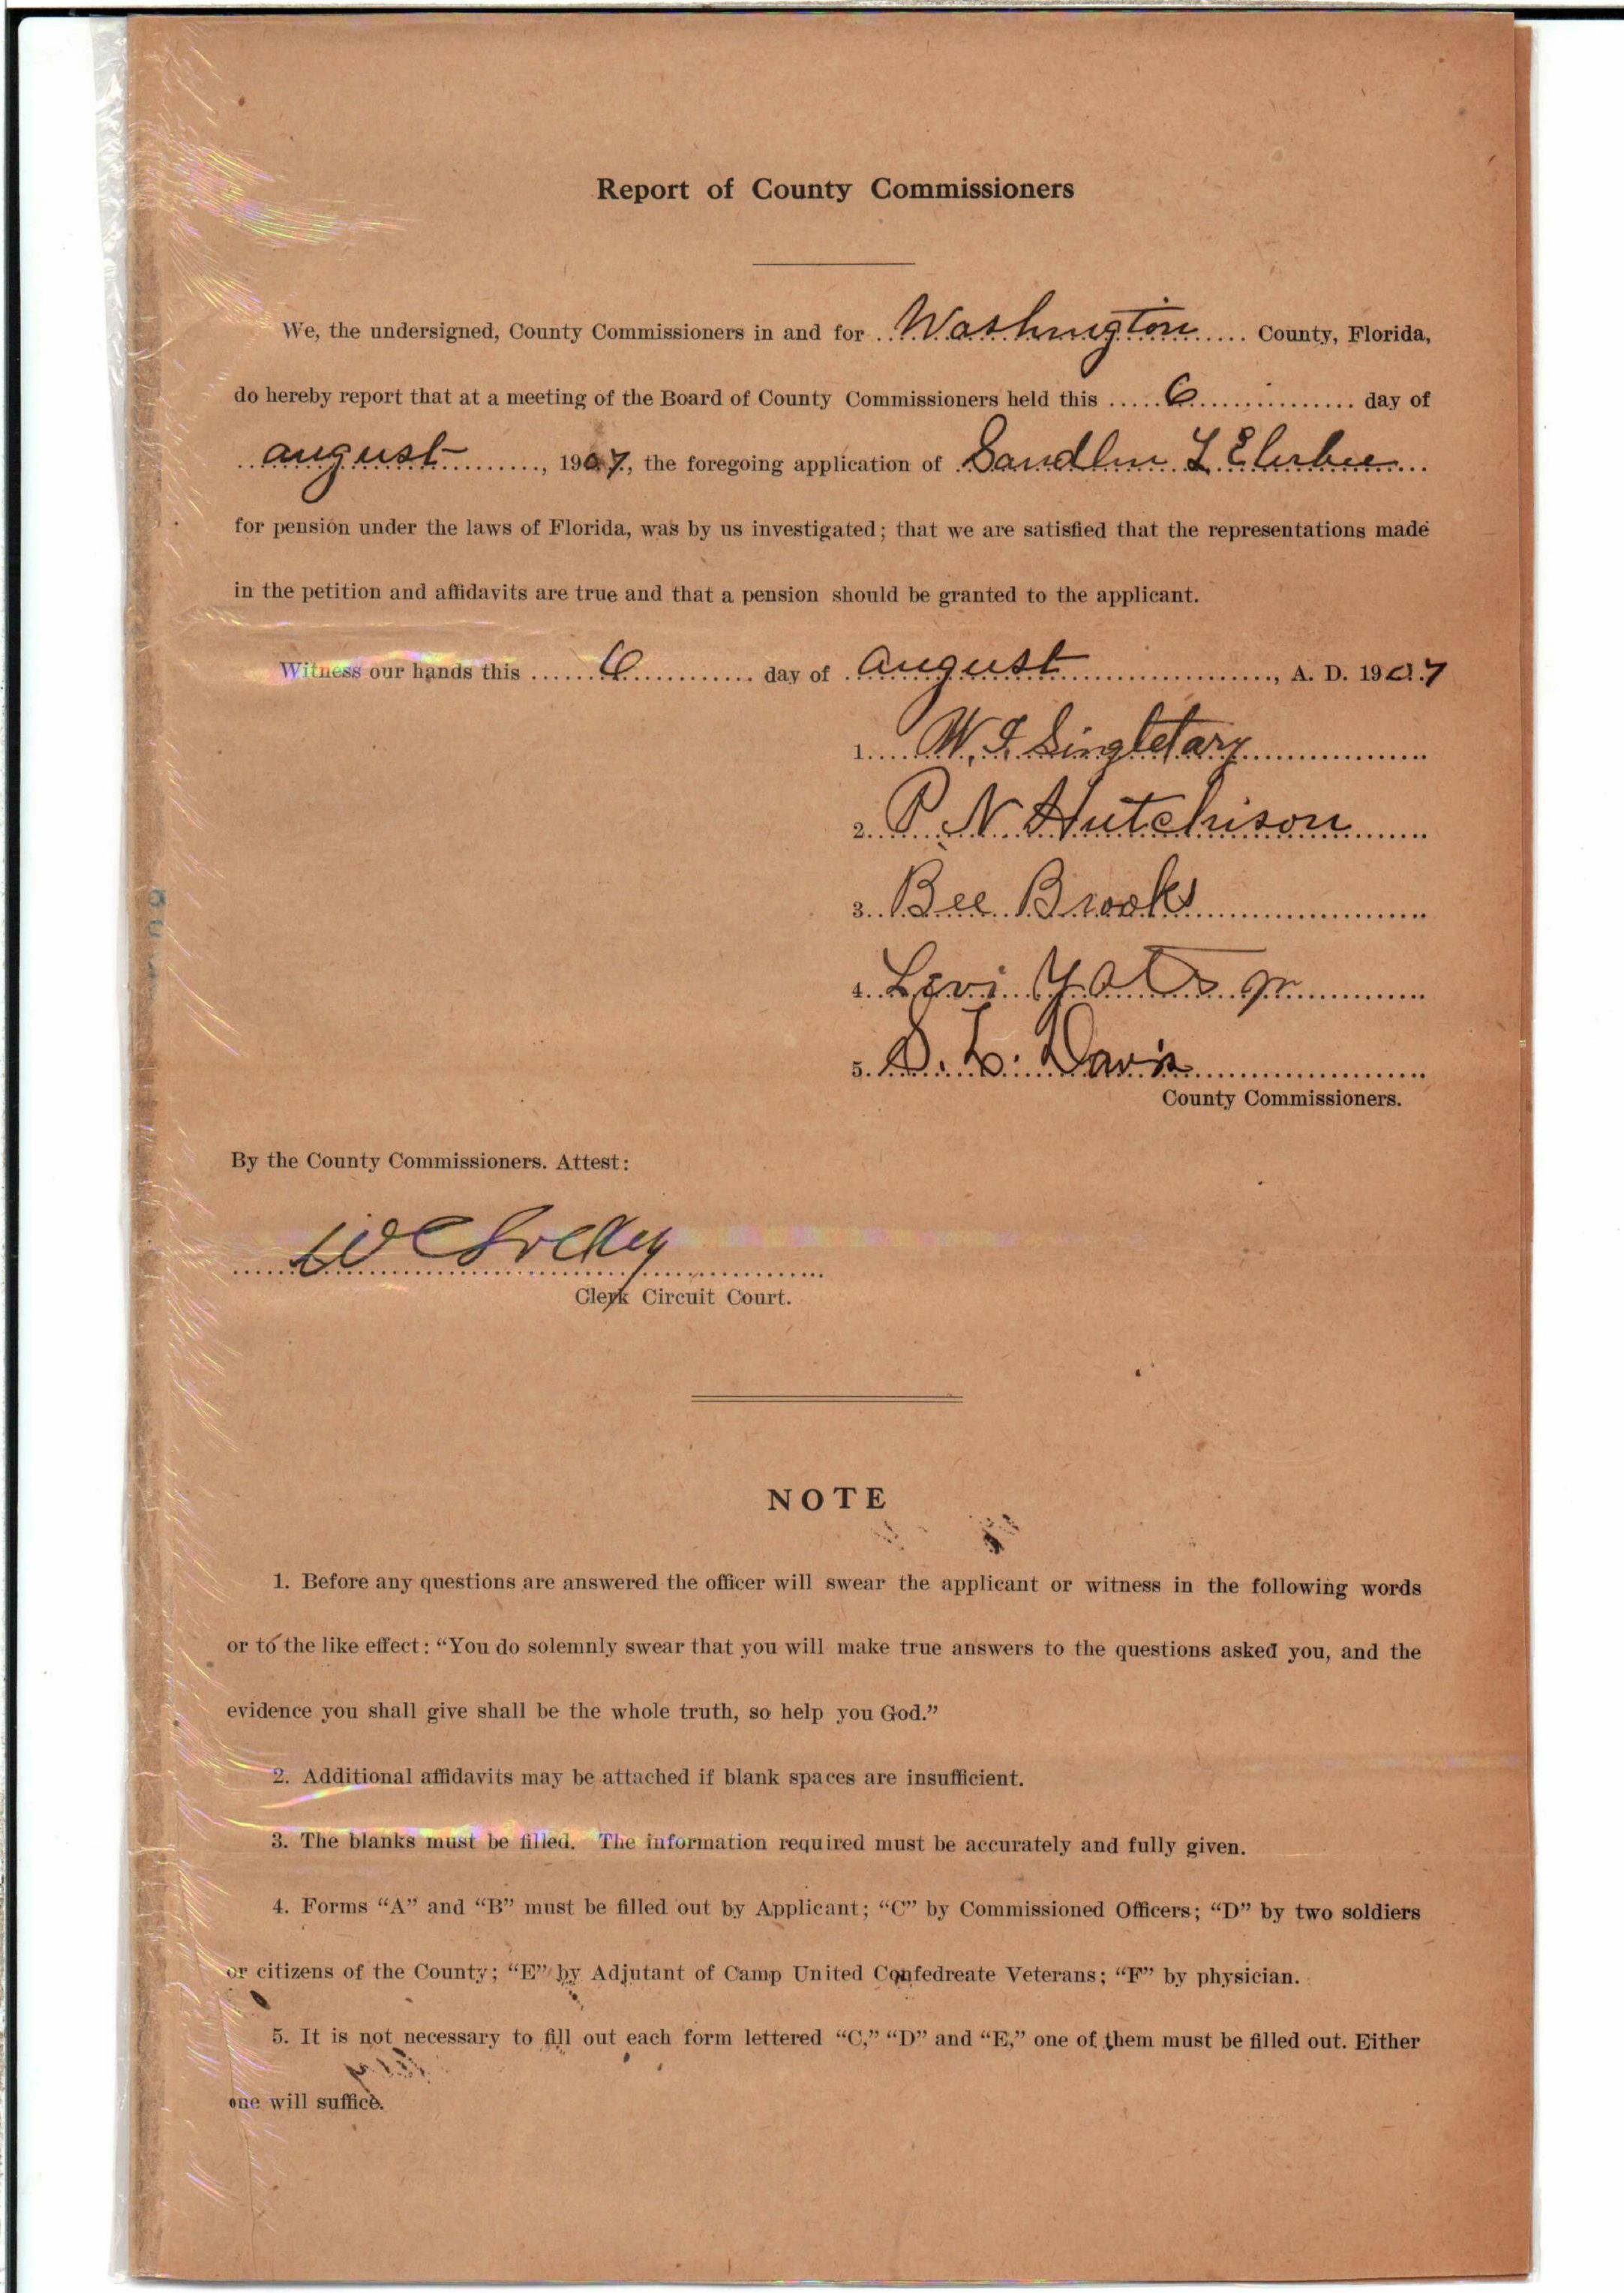 Report of County Commissioners
We, the undersigned, County Commissioners in and for Washington County, Florida,
do hereby report that at a meeting of the Board of County Commissioners held this 6 day of
august, 1907, the foregoing application of Sandlin L
for pension under the laws of Florida, was by us investigated; that we are satisfied that the representations made
in the petition and affidavits are true and that a pension should be granted to the applicant.
Witness our hands this 6 day of august, A. D. 1907
1. W. I. Singletary
2. P. N. Hutchison
3. Bee Brooks
4. Levi Yates Jr
5. D. L. Davis
County Commissioners.
By the County Commissioners. Attest:
W C
Clerk Circuit Court.
NOTE
1. Before any questions are answered the officer will swear the applicant or witness in the following words
or to the like effect: “You do solemnly swear that you will make true answers to the questions asked you, and the
evidence you shall give shall be the whole truth, so help you God.”
2. Additional affidavits may be attached if blank spaces are insufficient.
3. The blanks must be filled. The information required must be accurately and fully given.
4. Forms “A” and “B” must be filled out by Applicant; “C” by Commissioned Officers; “D” by two soldiers
or citizens of the County; “E” by Adjutant of Camp United Confedreate Veterans; “F” by physician.
5. It is not necessary to fill out each form lettered “C,” “D” and “E,” one of them must be filled out. Either
one will suffice.